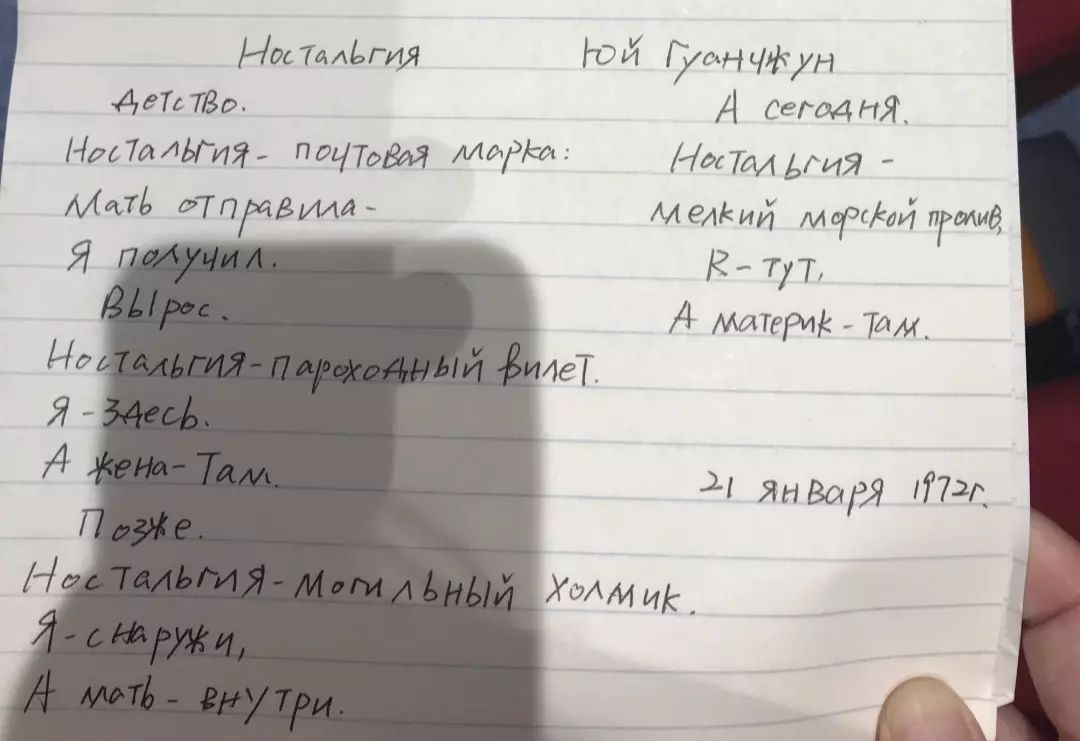 Ностальгия
Юй Гуанчжун
Детство.
Ностальгия - почтовая марка:
Мать отправила -
Я получил.
Вырос.
Ностальгия - пароходный вилет.
Я - здесь.
А жена - там.
Позже.
Ностальгия - могильный холмик.
Я - снаружи,
А мать - внутри.
А сегодня.
Ностальгия -
Мелкий морской пролив,
R - тут.
А материк - там.
21 января 1972г.